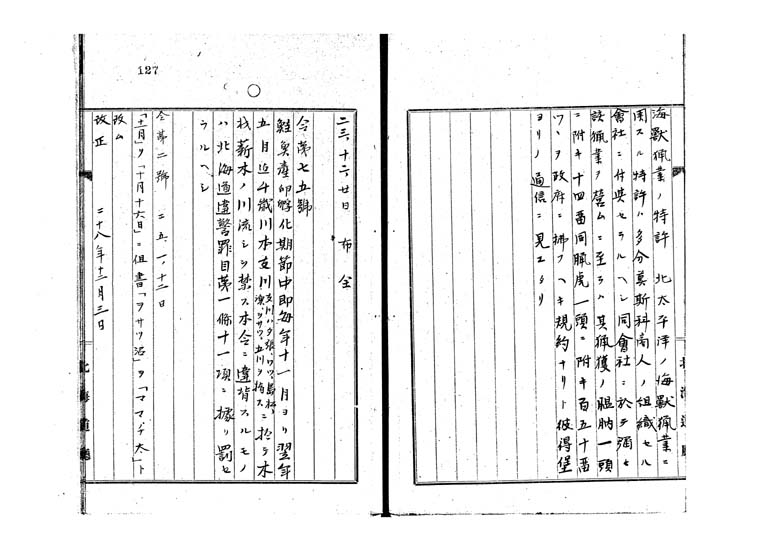 海獸猟業ノ特許 北太平洋ノ海獸猟業ニ
用スル特許ハ多分莫斯科商人ノ組織セル
會社ニ付与セラルヘシ同會社ニ於テ弥々
該猟業ヲ営ムニ至ラハ其猟獲ノ膃肭一頭
ニ附キ十四畨同臘虎一頭ニ附キ百五十畨
ツヽヲ政府ニ拂フヘキ規約ナリト彼得堡
ヨリノ通信ニ見エタリ
127
二三、十二、廿日 布令
令第七五號
鮭魚産卵孵化期節中即毎年十一月ヨリ翌年
五月迄千歳川本支川 ニ於テ木
材薪木ノ川流シヲ禁ス本令ニ違背スルモノ
ハ北海道違警罪目第一條十一項ニ據リ罰セ
ラルヘシ
令第二號 二五、一、十二日
「十一月」ヲ「十月十六日」ニ但書「ヲサツ沼」ヲ「ママチ太」ト
改ム
改正 二十八年十二月三日
北海道廳